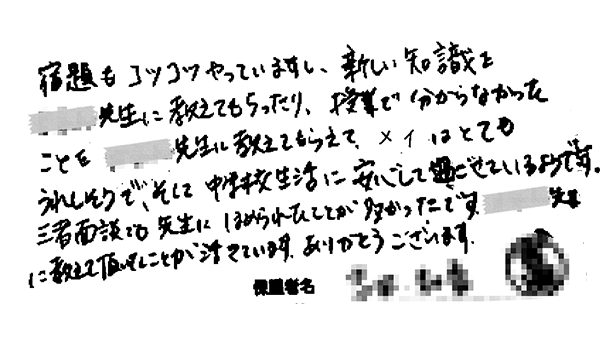 宿題もコツコツやっていますし、新しい知識を
先生に教えてもらったり、授業で分からなかった
ことを 先生に教えてもらえて、メイはとても
うれしそうで、そして中学校生活に安心して過ごせているようです。
三者面談でも先生にほめられたことが多かったです 先生
に教えて頂いたことが活きています。ありがとうございます。
保護者名